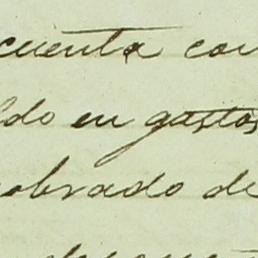 cuenta con
ldo en gastos
obrado de